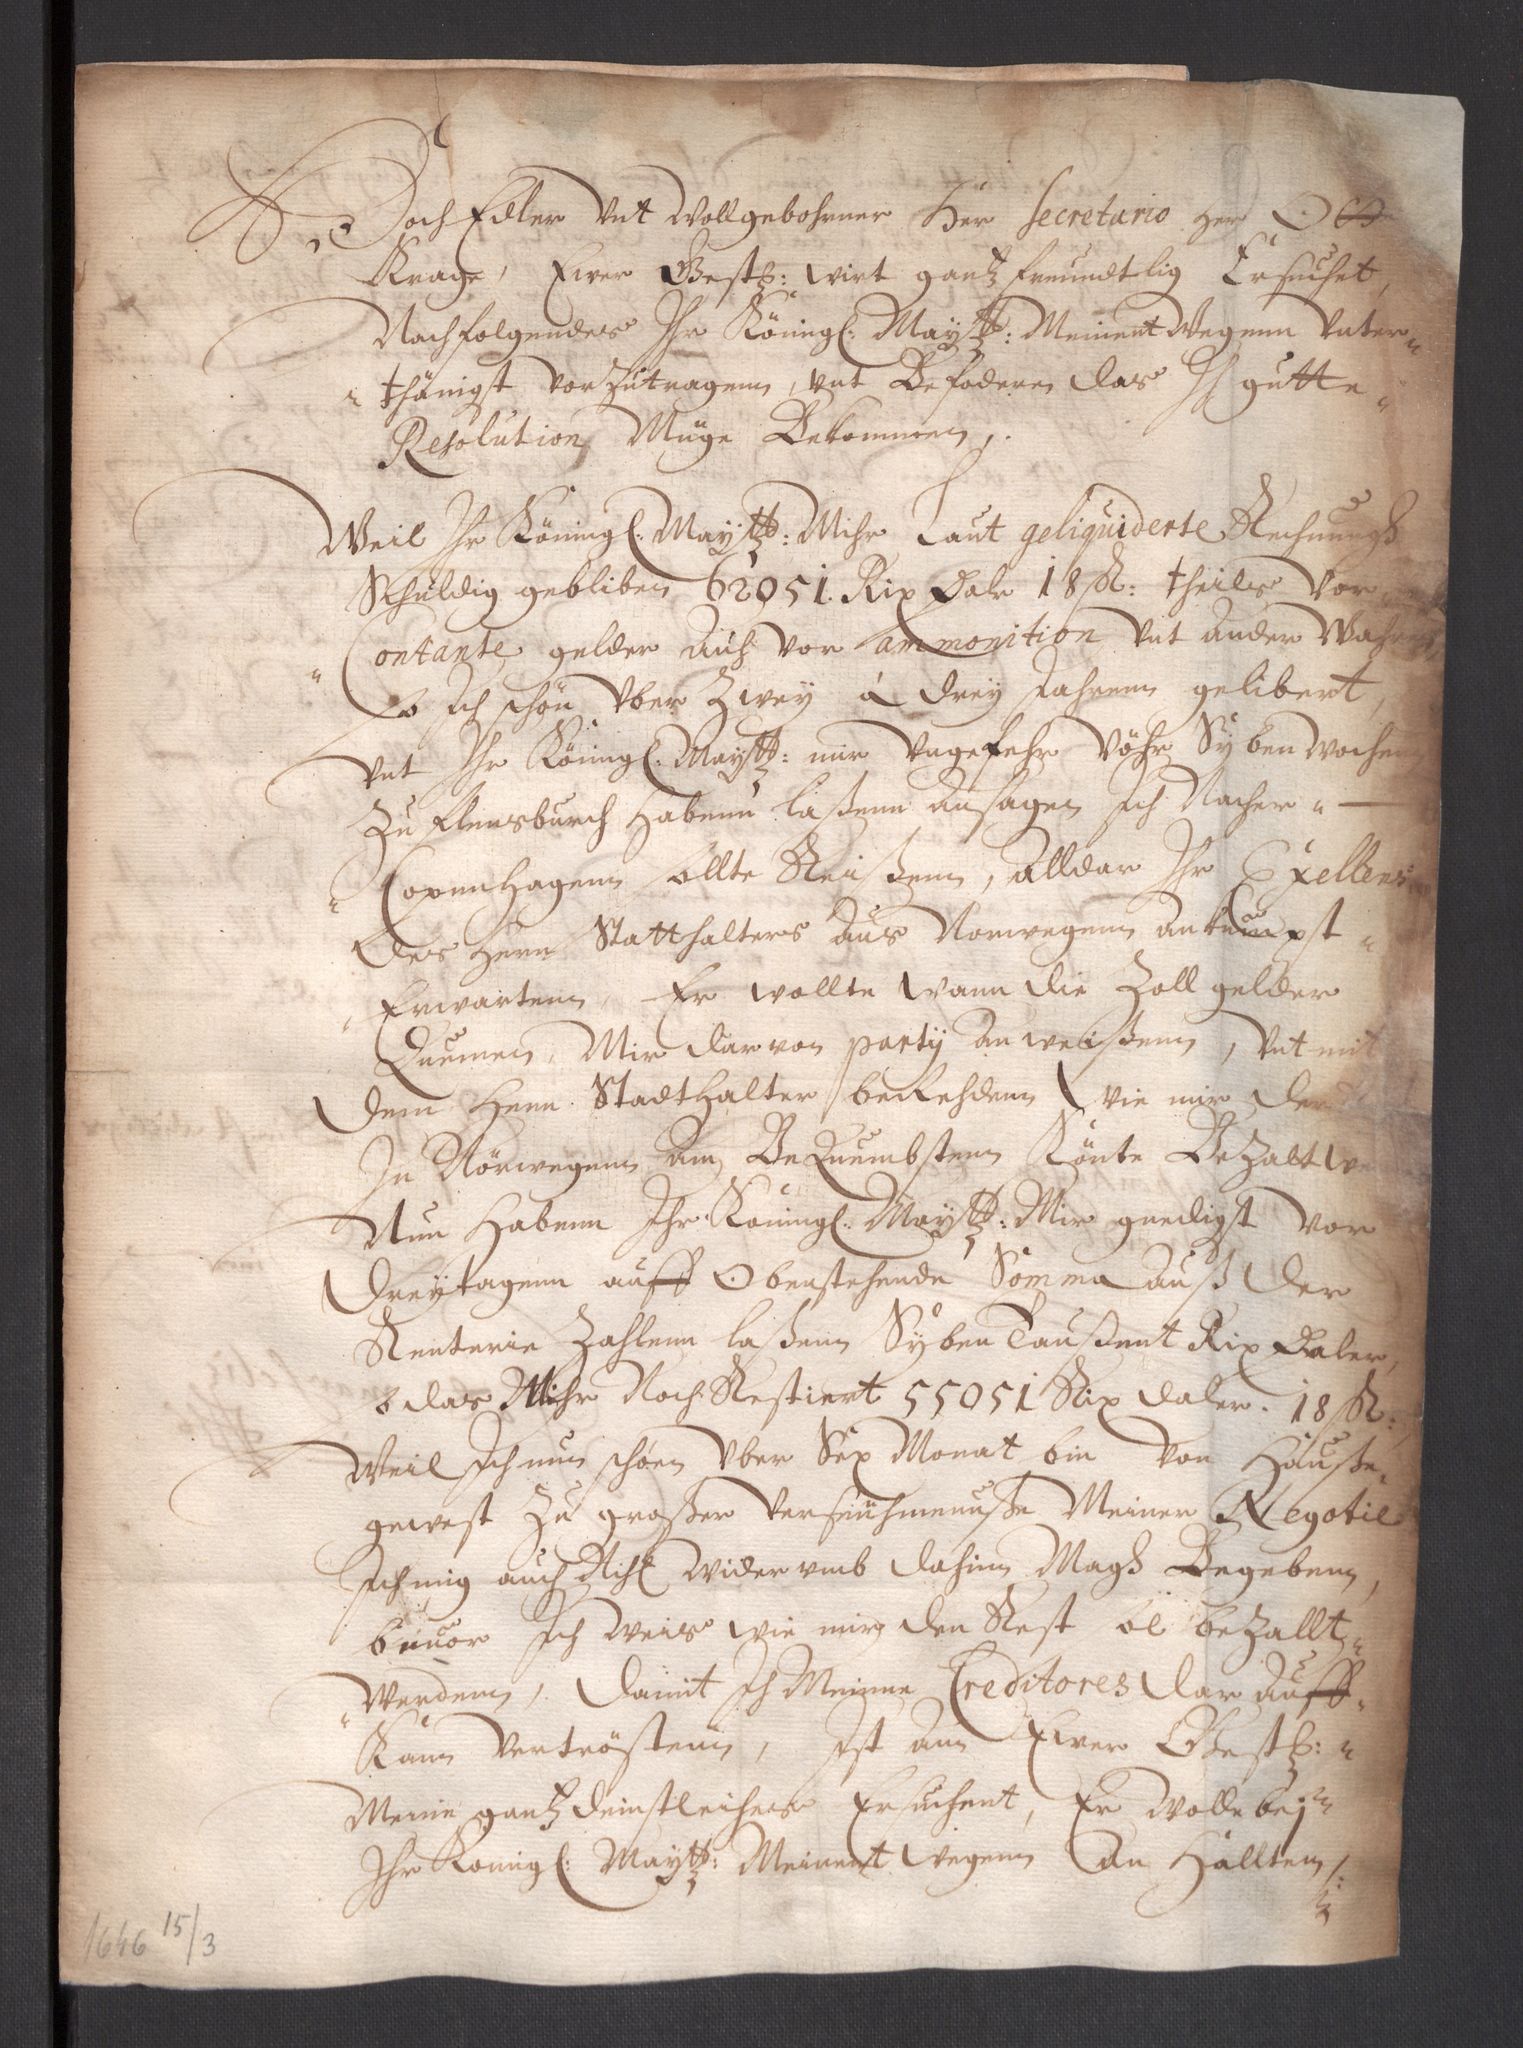 Hoch Edler Vnt Wollgebohrner Her Secretario Her Otte
Krage, Ewer Gestr: wirt gantz freundtlig Ersuchet,
Nachfolgendes Ihr Königl: Maytt: Meinent Wegenn Vnter-
thänigst vorzutragenn, vnt Befoderen das Ich gutte
Resolution Müge Bekommen,.
Weil Ihr Königl: Maytt: Mihr Laut geliquiderte Rechnungh
Schuldig gebliben 62051. Rix Dalr 18 ß: theils Vor
Contante gelder auch vor ammonition vnt ander Wahren
So Ich schön Vber Zwey á drey Jahrenn gelibert,
Vnt Ihr Königl: Maytt: mir Vngefehr Vöhr Syben Wochen
Zu Flensburch Habenn Laßenn ansagen Ich Nacher
Copenhagenn sollte Reisenn, alldar Ihr Exellens
des Hern Statthalters aus Norwegenn ankumpst
Erwartenn, Er wollte wann die Zoll gelder
Quemen, Mir dar von party anweißenn, Vnt mit
dem Hern Stadthalter beRehdenn wie mir der
In Nörwegenn am BeQuembstenn Könte Bezalt
Nun Habenn Ihr Königl: Maytt: Mir gnedigst vor
dreytagenn auff Obenstehende Somma auß der
Renterie Zahlenn Laßenn Syben Taußent Rix Daler,
so das Mihr Noch Restiert 55051 Rix daler. 18 ß:
Weil Ich nun schön Vber Sex Monat bin Von Hauße
gewest Zu großer Verseuhmenuße Meiner Negotie
Ich mig auch Nicht wider vmb dahinn Magh Begebenn,
beuor Ich weis wie mir den Rest sol bezallt
Werdenn, damit Ich Meinne Creditores dar auff
Kann Vertröstenn, Ist ann Ewer Gestr:
Meine gantz deinstleiches Ersuchent, Er wolle bej
Ihr Königl: Maytt: Meinent wegenn an Hallten,
1646 15/3